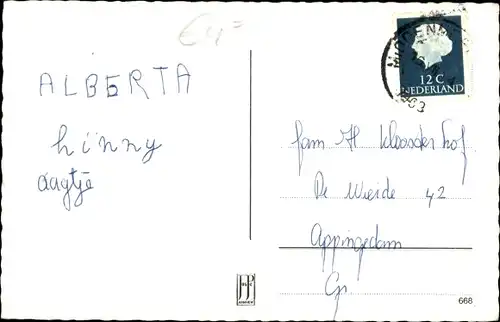 €4=
ALBERTA
hinny
aagtje
12 C
NEDERLAND
fam H Kloosterhof
De Weide 42
Appingedam
Gr.
668